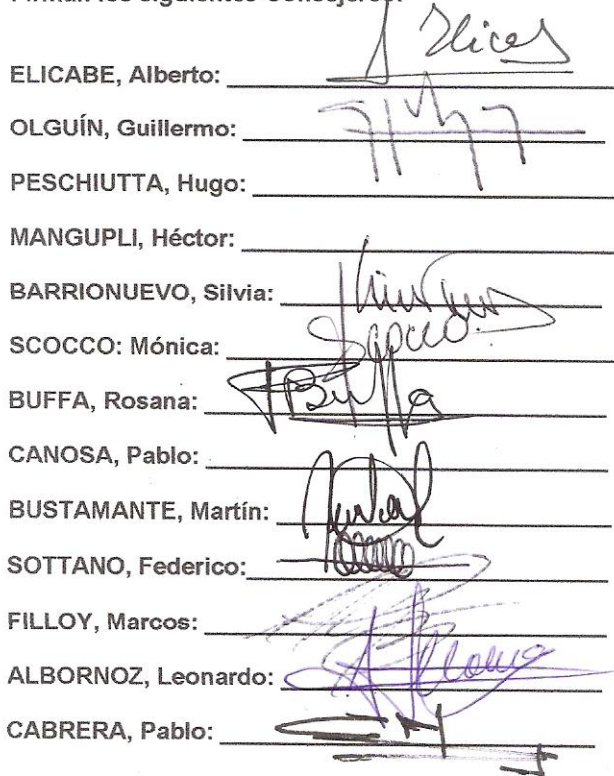 Firman los siguientes Consejeros:
ELICABE, Alberto:
OLGUÍN, Guillermo:
PESCHIUTTA, Hugo:
MANGUPLI, Héctor:
BARRIONUEVO, Silvia:
SCOCCO: Mónica:
Scocco
BUFFA, Rosana:
Buffa
CANOSA, Pablo:
BUSTAMANTE, Martín:
SOTTANO, Federico:
FILLOY, Marcos:
ALBORNOZ, Leonardo:
CABRERA, Pablo: